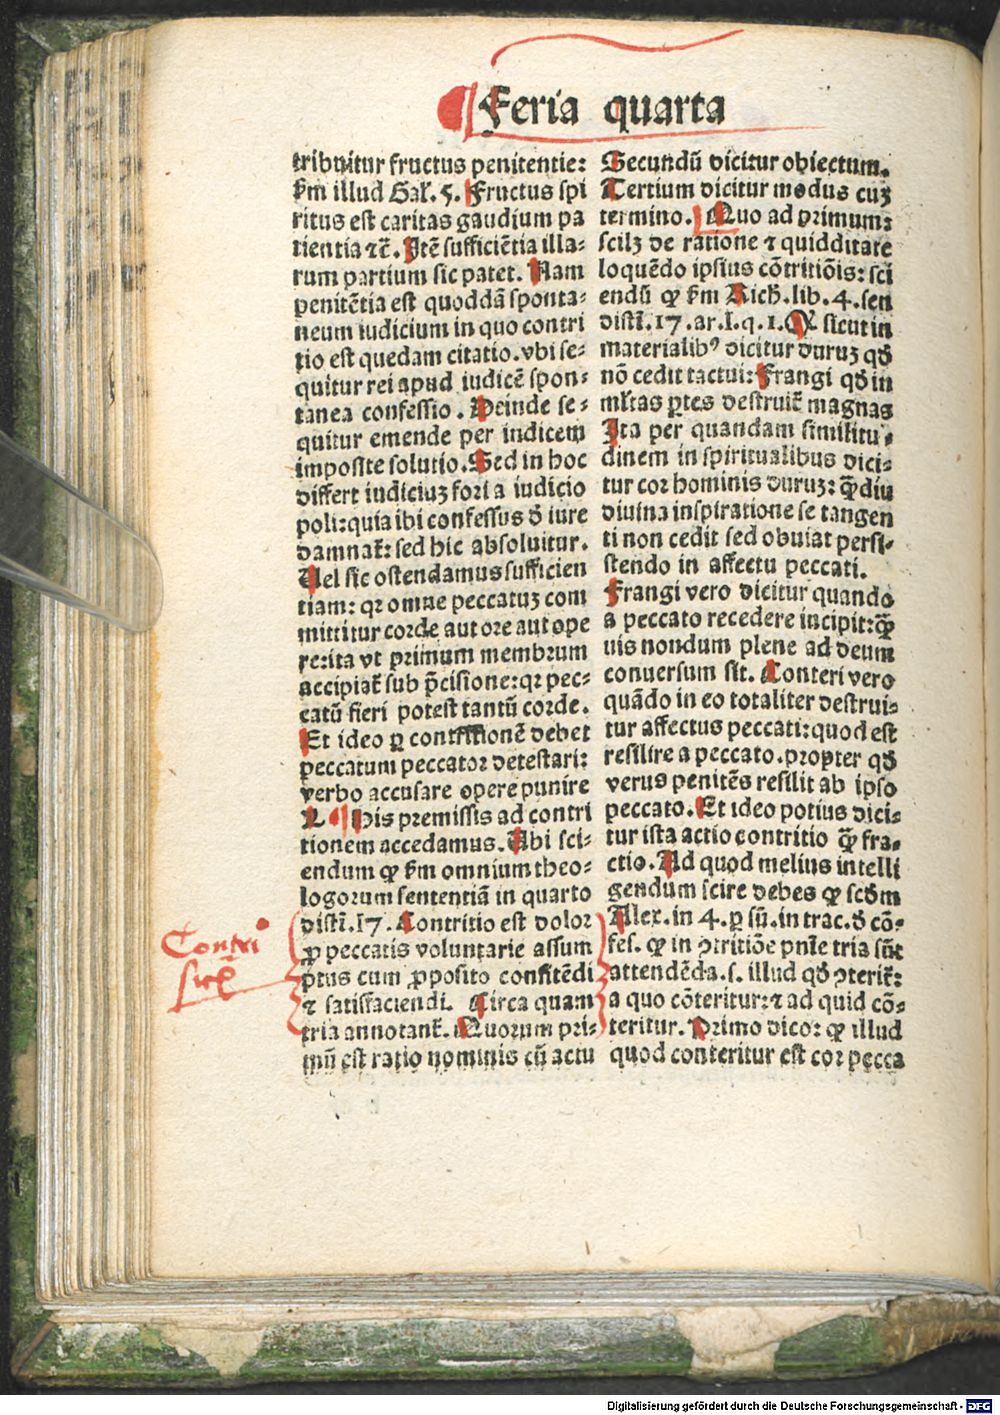 Feria quarta
tribuitur fructus penitentie:
ẜm illud Gal̄. 5. Fructus spi
ritus est caritas gaudium pa
tientia ⁊cͣ. Itē sufficiētia illa⸗
rum partium sic patet. Nam
penitētia est quoddā sponta⸗
neum iudicium in quo contri
tio est quedam citatio. vbi se⸗
quitur rei apud iudicē spon⸗
tanea confessio. Deinde se⸗
quitur emende per iudicem
imposite solutio. Sed in hoc
differt iudiciuꝫ fori a iudicio
poli: quia ibi confessus ď iure
damnat̄: sed hic absoluitur.
Uel sic ostendamus sufficien
tiam: qꝛ omne peccatuꝫ com
mittitur corde aut ore aut ope
rerita vt primum membrum
accipiat̄ sub p̄cisione: qꝛ pec⸗
catū fieri potest tantū corde.
Et ideo ꝑ contritionē debet
peccatum peccator detestari:
verbo accusare opere punire
His premissis ad contri
tionem accedamus. Ubi sci⸗
endum ꝙ ẜm omnium theo⸗
logorum sententiā in quarto
dist̄. 17. Contritio est dolor
ꝓ peccatis voluntarie assum
ptus cum ꝓposito confitēdi
⁊ satisfaciendi. Circa quam
tria annotant̄. Quorum pri⸗
mū est ratio nominis cū actu
Contri
Secundū dicitur obiectum.
Tertium dicitur modus cuꝫ
termino. Quo ad primum:
scilꝫ de ratione ⁊ quidditate
loquēdo ipsius cōtritiōis: sci
endū ꝙ ẜm Rich̄. lib. 4. sen
dist̄. 17. ar. I. q. 1. Q sicut in
materialibꝰ dicitur duruꝫ qď
nō cedit tactui: Frangi qď in
ml̄tas ꝑtes destruit̄ magnas
Ita per quandam similitu⸗
dinem in spiritualibus dici⸗
tur cor hominis duruꝫ: qͣ̄diu
diuina inspiratione se tangen
ti non cedit sed obuiat persi⸗
stendo in affectu peccati.
Frangi vero dicitur quando
a peccato recedere incipit: qͣ̄
uis nondum plene ad deum
conuersum sit. Conteri vero
quādo in eo totaliter destrui⸗
tur affectus peccati: quod est
resilire a peccato. propter qď
verus penitēs resilit ab ipso
peccato. Et ideo potius dici⸗
tur ista actio contritio qͣ̄ fra⸗
ctio. Ad quod melius intelli
gendum scire debes ꝙ scďm
Alex. in 4. ꝑ sū. in trac. ď cō⸗
fes. ꝙ in ꝯtritiōe pn̄le tria sūt
attendēda. s. illud qď ꝯterit̄:
a quo cōteritur: ⁊ ad quid cō⸗
teritur. Primo dico: ꝙ illud
quod conteritur est cor pecca
Digitalisierung gefördert durch die Deutsche Forschungsgemeinschaft - DFG